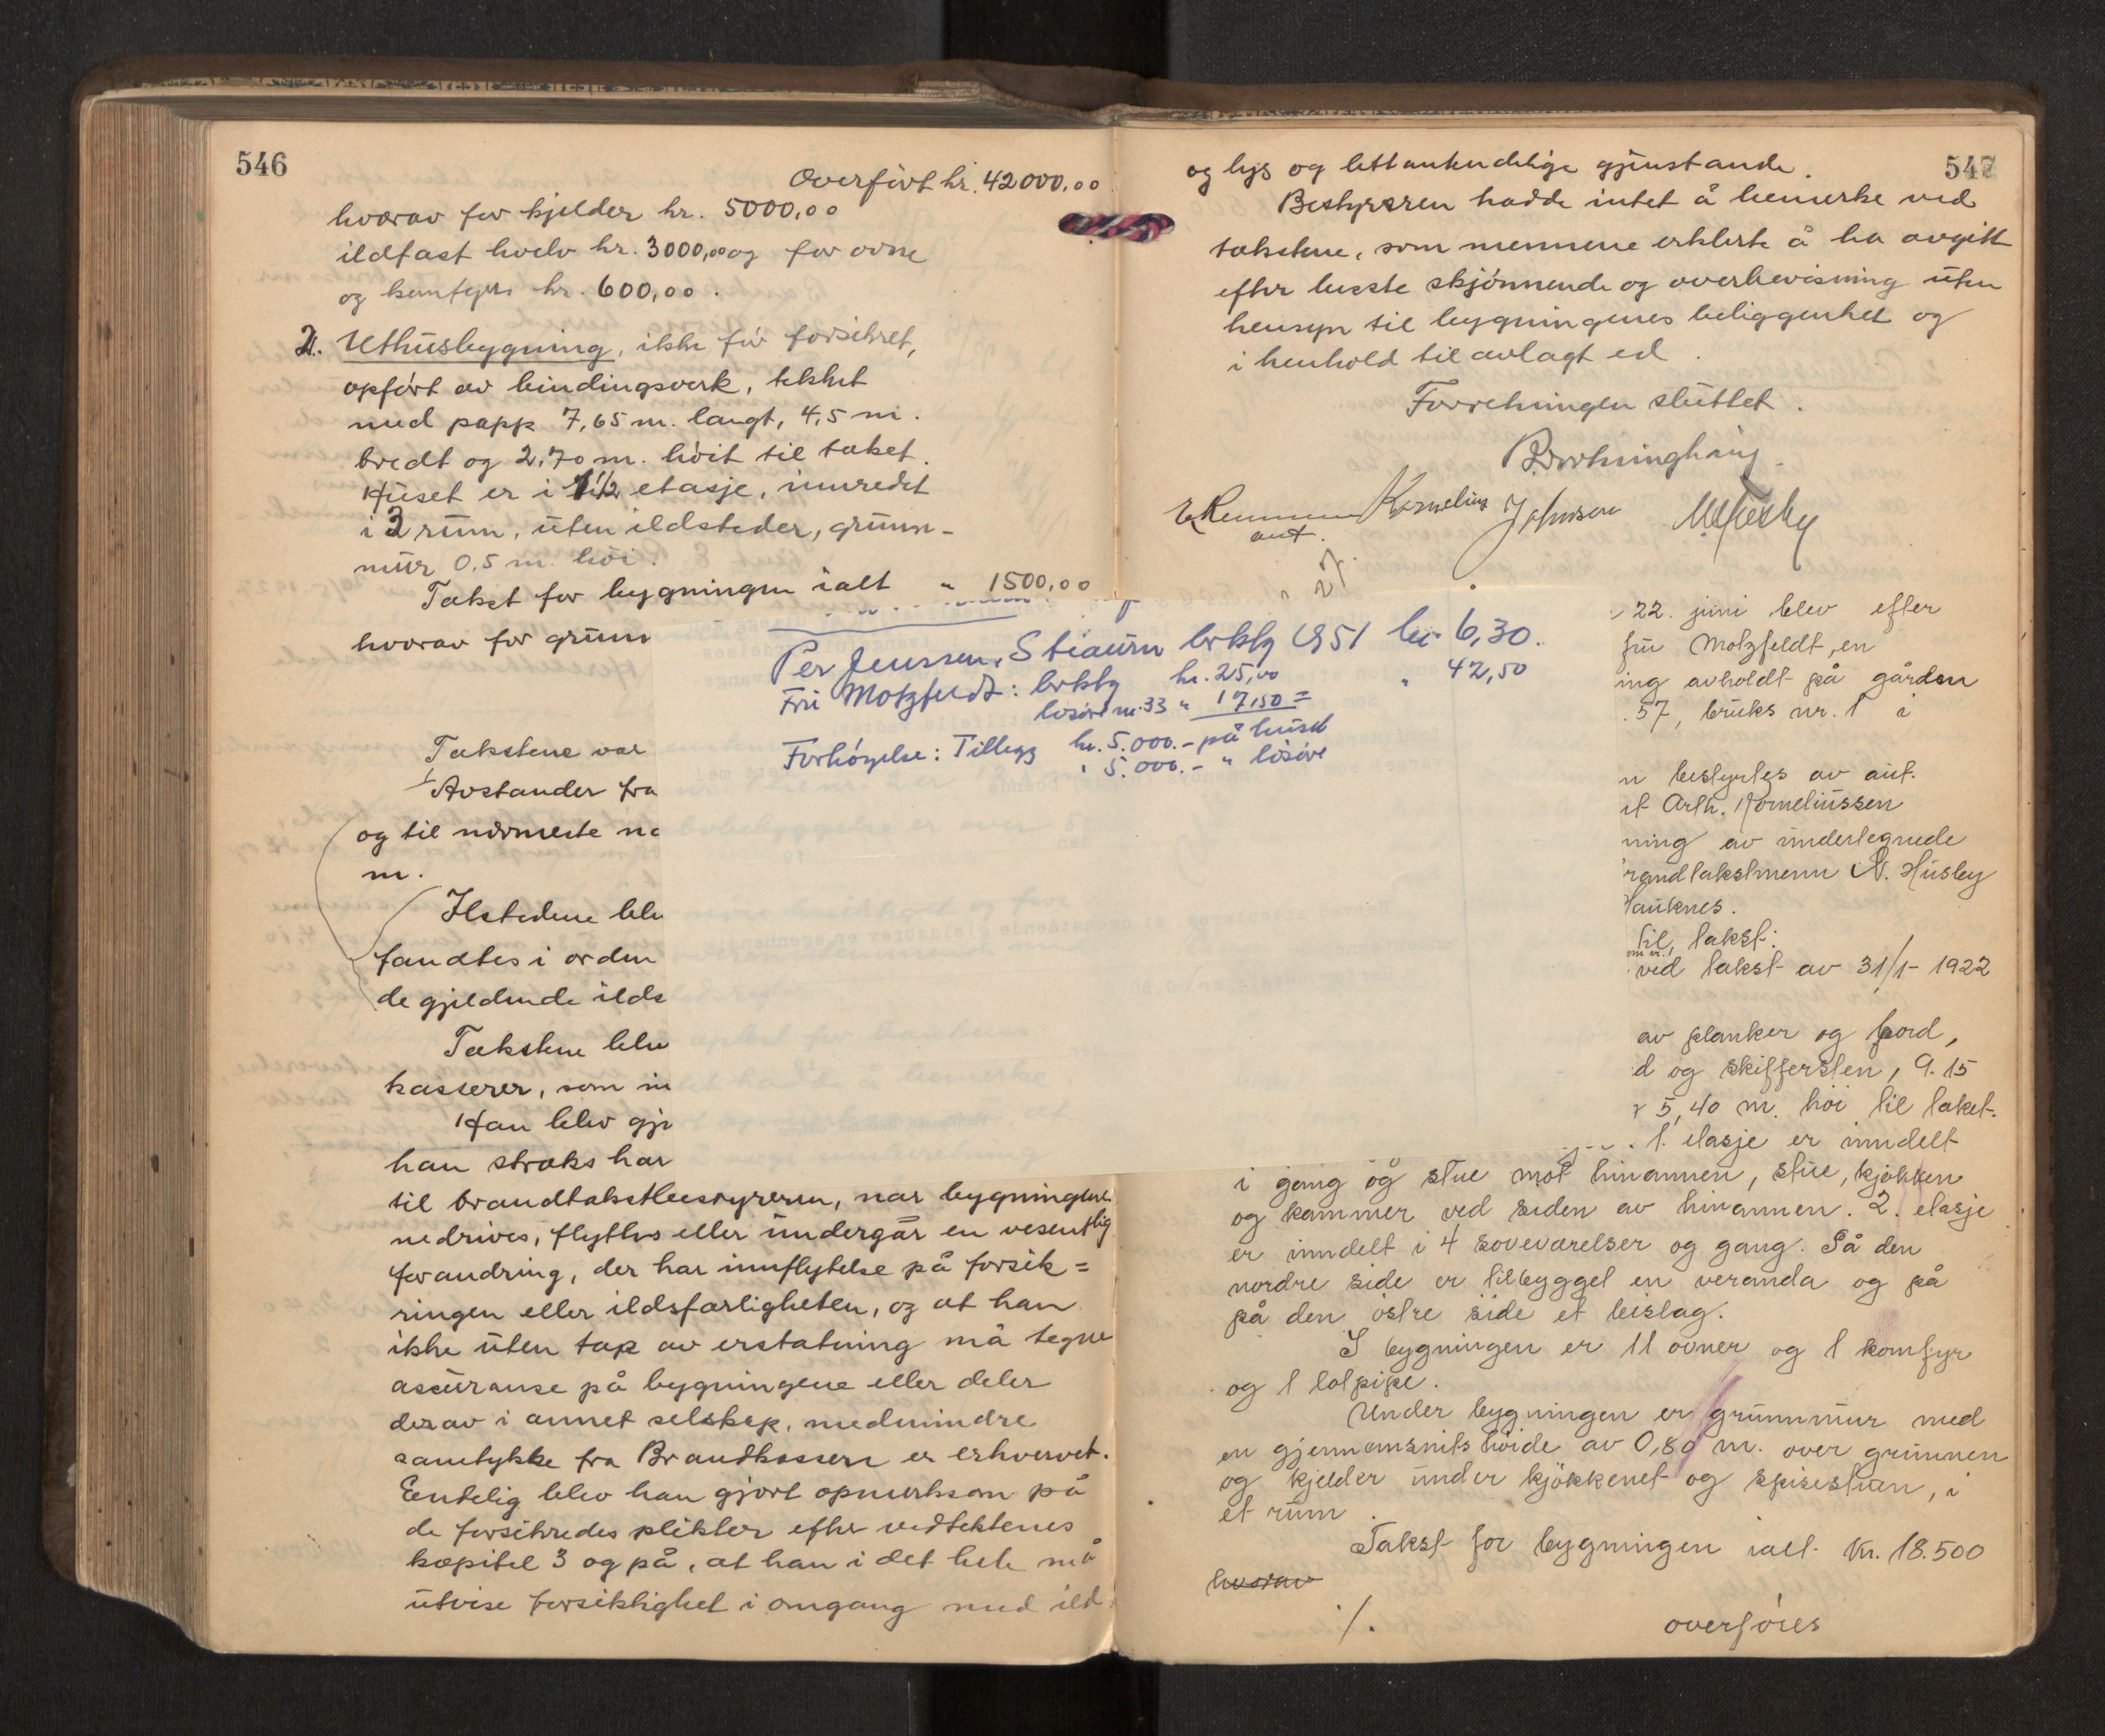 546
Overført kr. 42000,00
hvorav for kjelder kr. 5000,00
ildfast hvelv kr. 3000,00 og for ovne
og komfyrs kr. 600,00.
2. Uthusbygning, ikke før forsikret,
opført av bindingsverk, tekket
med papp 7,65 m. langt, 4,5 m.
bredt og 2,70 m. höit til taket.
Huset er i 1 1/2 etasje, innredet
i 3 rum, uten ildsteder, grunn-
mur 0,5 m. høi.
Takst for bygningen ialt " 1500,00
hvorav for grunn
Takstene var
Avstander fra
og til nærmeste na
m.
Ilstedene blev
fandtes i orden
de gjeldende ilds
Takstene blev
kasserer, som in
Han blev gjo
han straks har
til brandtakstbestyreren, nar bygningene
nedrives, flyttes eller undergår en vesentlig
forandring, der har innflytelse på forsik=
ringen eller ildsfarligheten, og at han
ikke uten tap av erstatning må tegne
assuranse på bygningene eller deler
derav i annet selskap, medmindre
samtykke fra Brandkassen er erhvervet.
Eendelig blev han gjort opmerksom på
de forsikredes plikter efter vedtektenes
kapitel 3 og på, at han i det hele må
utvise forsiktighet i omgang med ild
Per Jenssen, Stiaurn brktg 1951 kr. 6,30.
Fru Motzfeldt: brktg kr. 25,00
løsöre nr. 33 " 17,50 = " 42,50
Forhöyelse: Tillegg kr. 5.000.- på huset
" 5.000.- " lösöre
547
og lys og lettantendelige gjenstande.
Bestyreren hadde intet å bemerke ved
takstene, som mennene erklerte å ha avgitt
efter beste skjønnende og overbevisning uten
hensyn til bygningenes beliggenhet og
i henhold til avlagt ed.
Forretningen sluttet.
Kornelius Johnsen M Husby
aut.
22. juni blev efter
fru Motzfeldt, en
ing avholdt på gården
57, bruks nr. 1 i
n bestyrtes av aut.
it Arth. Korneliussen
ning av undertegnede
randtakstmenn N. Husby
Hauknes.
til takst:
ved takst av 31/1- 1922
av planker og bord,
d og skiffersten, 9.15
r 5,40 m. höi til taket.
1. etasje er inndelt
i gang og stue mot hinannen, stue, kjökken
og kammer ved siden av hinannen. 2. etasje
er inndelt i 4 soveværelser og gang. På den
nordre side er tilbygget en veranda og på
på den östre side et bislag.
I bygningen er 11 ovner og 1 komfyr
og 1 lolpipe.
Under bygningen er grunnmur med
en gjennemsnits höide av 0,80 m. over grunnen
og kjelder under kjökkenet og spisestuen, i
et rum.
Takst for bygningen ialt kr. 18.500
hvorav
./.
overföres